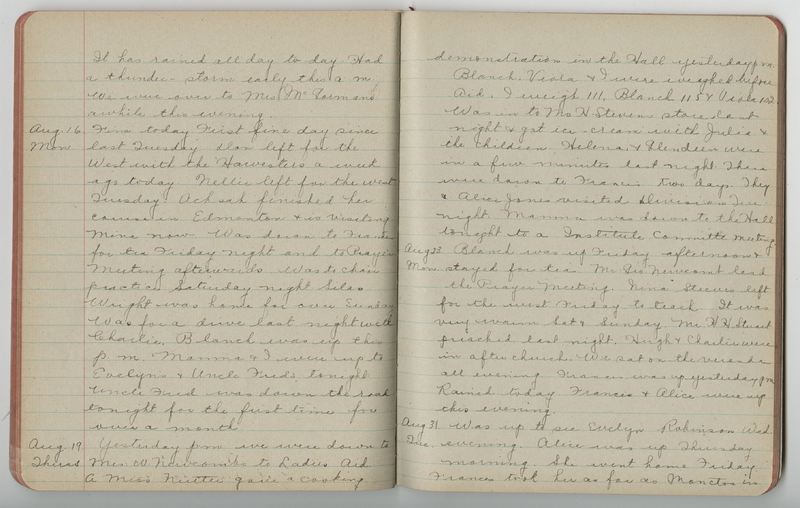 It has rained all day to day Had
a thunder-storm early this a m.
We were over to Mrs. McGormans
awhile this evening.
Aug. 16 Fine today First fine day since
Mon last Tuesday Don left for the
West with the Harvesters a week
ago today Nellie left for the west
Tuesday Achsah finished her
course in Edmonton & is visiting
Mina now Was down to Frances
for tea Friday night and to Prayer
Meeting afterwards Was to choir
practice Saturday night Silas
Wright was home for over Sunday
Was for a drive last night with
Charlie. Blanch was up this
p. m. Mamma & I were up to
Evelyns & Uncle Freds tonight
Uncle Fred was down the road
tonight for the first time for
over a month
Aug 19 Yesterday pm we were down to
Thurs Mrs W Newcombs to Ladies Aid
A Miss gave a cooking
demonstration in the Hall yesterday p m.
Blanch. Viola & I were weighed before
Aid. I weigh 111, Blanch 115 & Viola 102.
Was in to Mrs H Stevens store last
night & got ice-cream with Julia &
the children Helena & Glendeen were
in a few minutes last night There
were down to Francis two days. They
& Alice Jones visited Division Tue
night. Mamma was down to the Hall
tonight to a Institute Committee meeting
Aug 23 Blanch was up Friday afternoon &
Mon. stayed for tea. Mr Newcomb lead
the Prayer Meeting. Nina Steeves left
for the west Friday to teach. It was
very warm Sat & Sunday Mr H H Stuart
preached last night. Hugh & Charlie were
in after church. We sat on the veranda
all evening Frances was up yesterday p m
Rained today Frances & Alice were up
this evening.
Aug 31 Was up to see Evelyn Robinson Wed
Tue. evening. Alice was up Thursday
morning She went home Friday
Frances took her as far as Moncton in